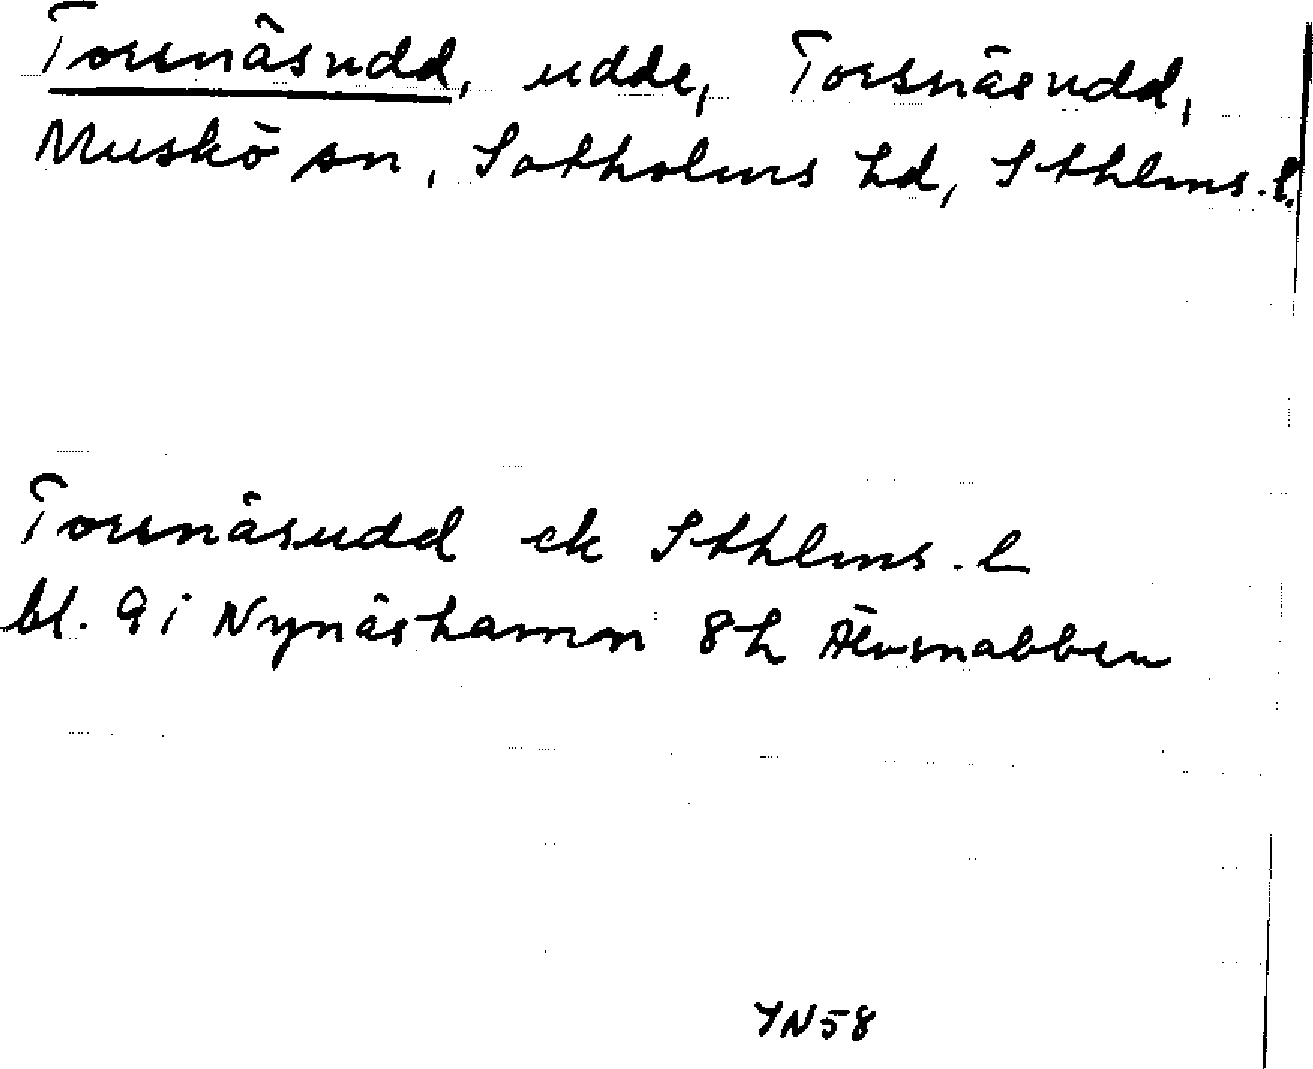 Torsnäsudd, udde, Torsnäsudd,
Muskö sn, Sotholms hd, Sthlms. l.
Torsnäsudd ek Sthlms. l
bl. 9 i Nynäshamn 8h Älvsnabben
YN58